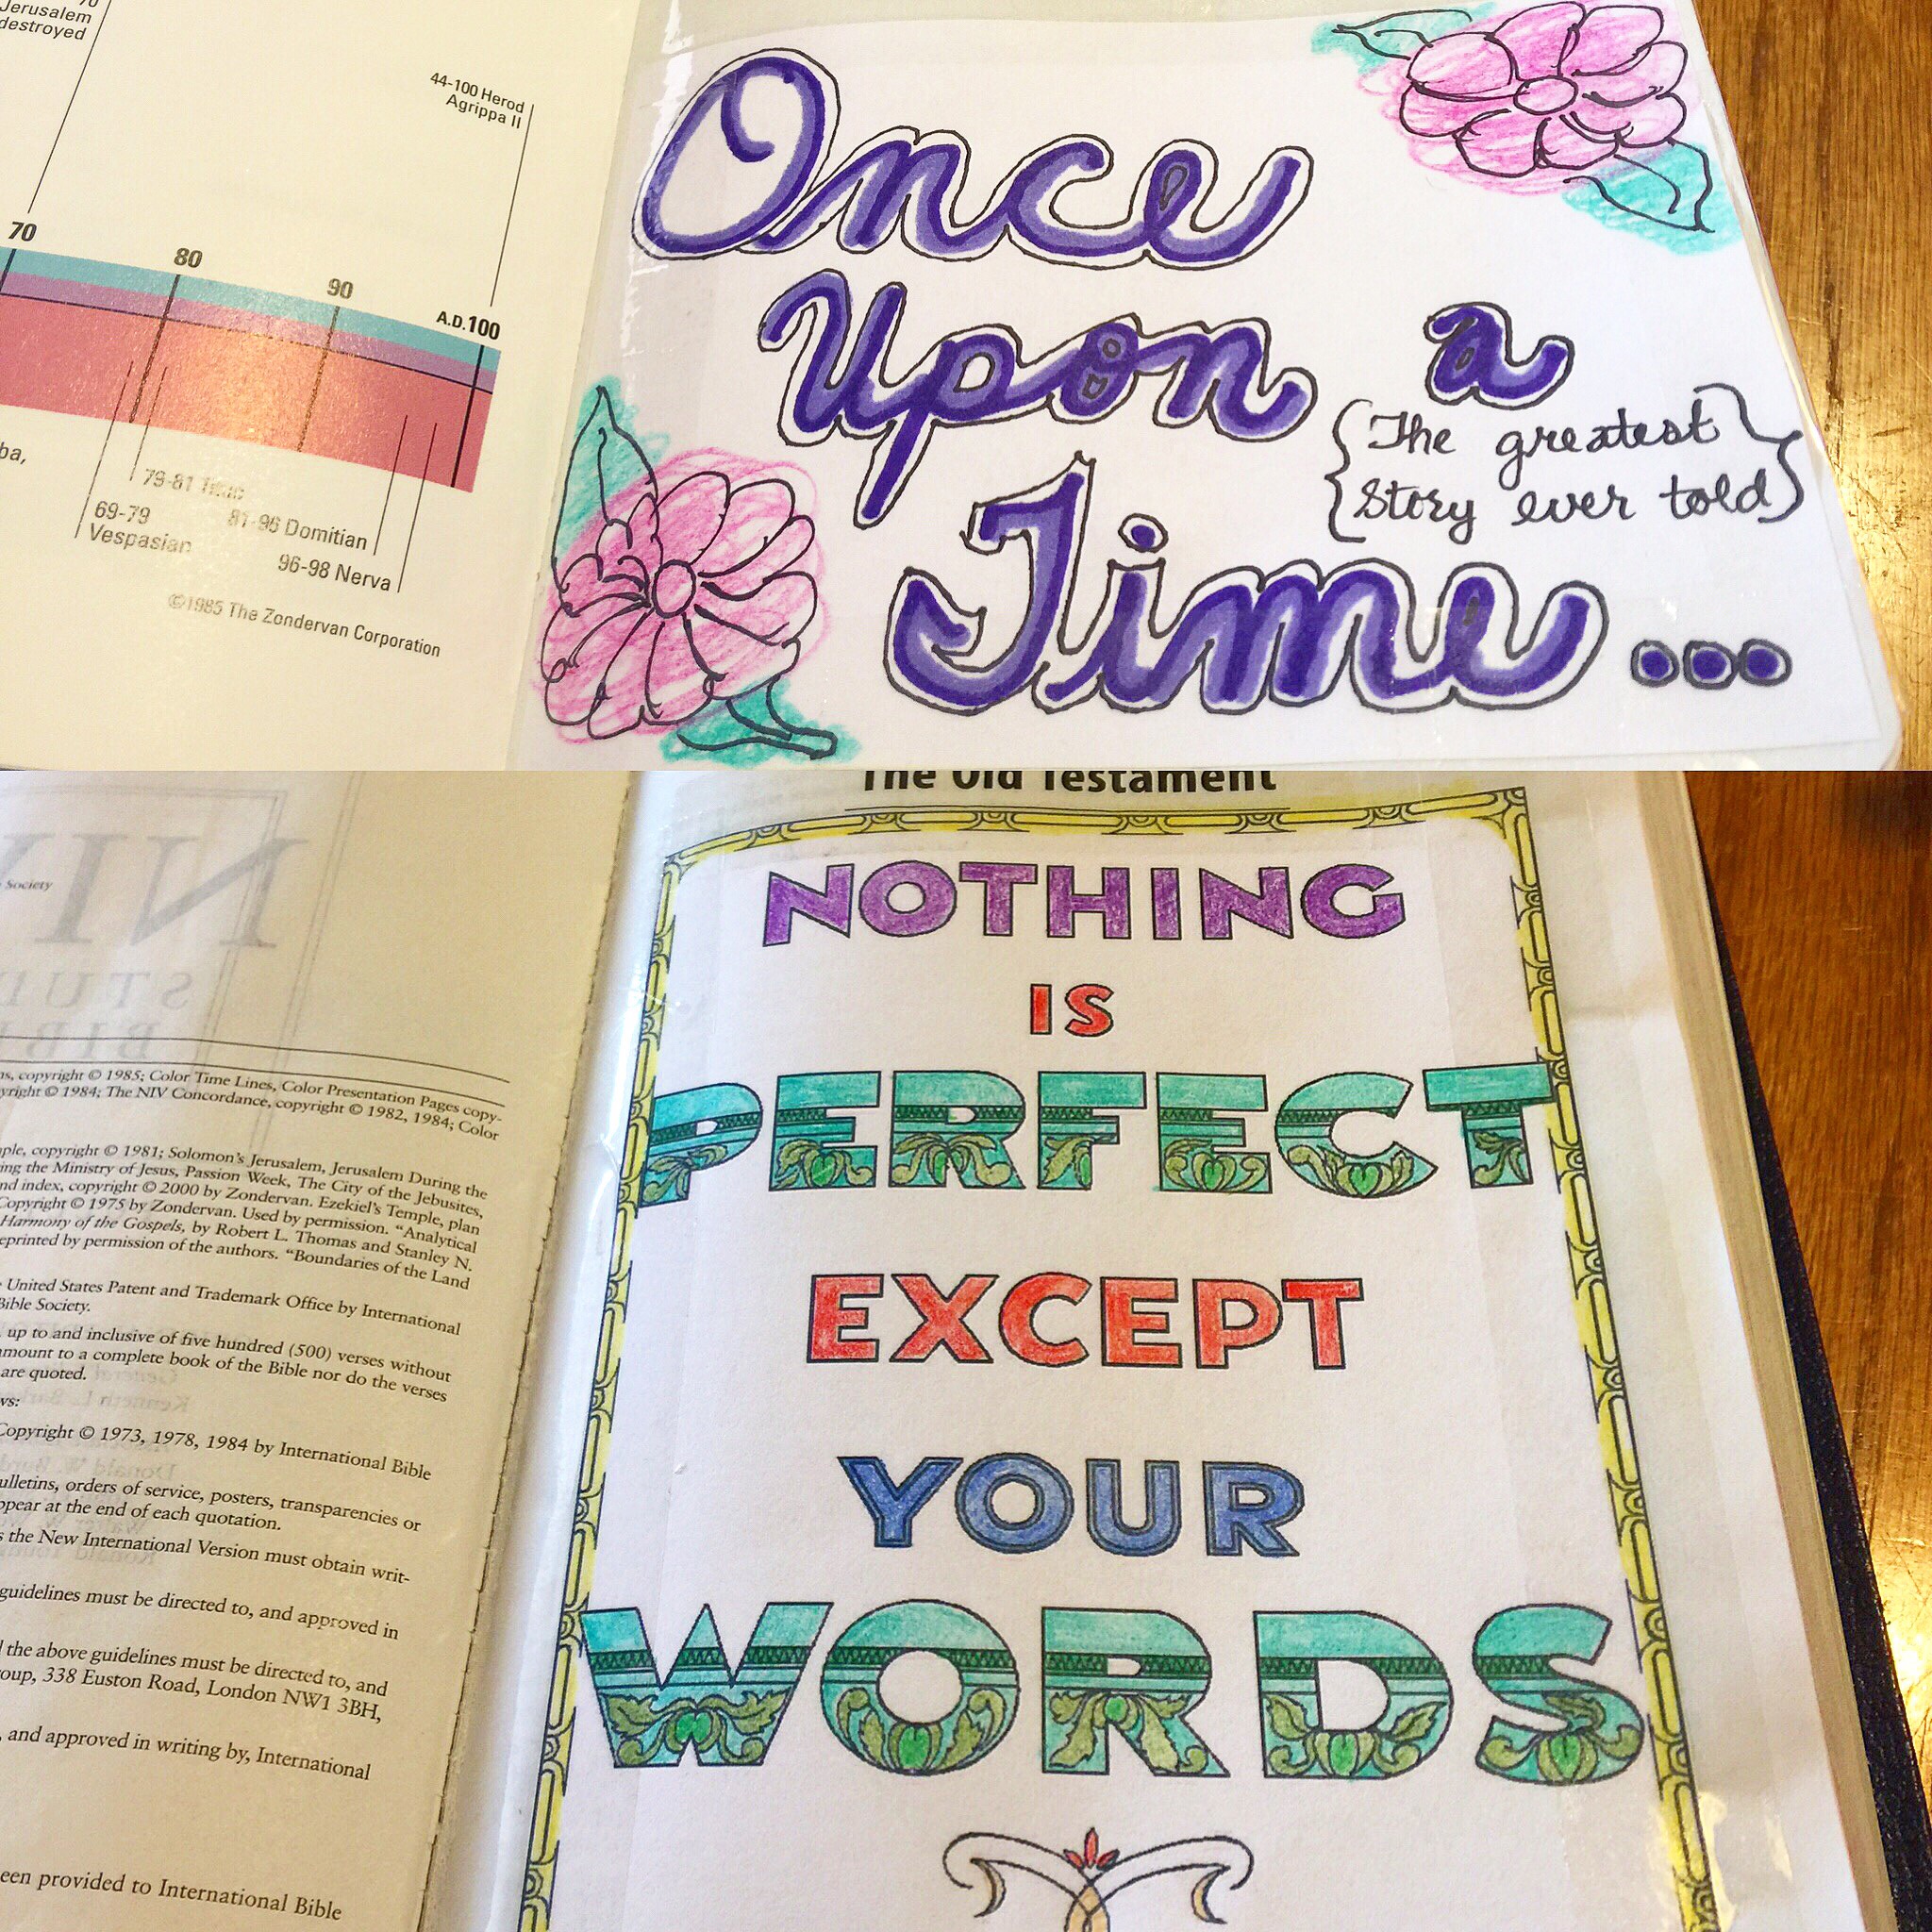 70
Jerusalem
destroyed
44-100 Herod
Agrippa II
70
80
90
A.D.100
79-81 Titus
69-79
Vespasian
81-96 Domitian
96-98 Nerva
©1985 The Zondervan Corporation
Once
Upon a
{The greatest}
{Story ever told}
Time...
The Old Testament
NOTHING
IS
PERFECT
EXCEPT
YOUR
WORDS
NIV
STUD
BIB
Society
copyright © 1985; Color Time Lines, Color Presentation Pages copy-
© 1984; The NIV Concordance, copyright © 1982, 1984; Color
copyright © 1981; Solomon's Jerusalem, Jerusalem During the
the Ministry of Jesus, Passion Week, The City of the Jebusites,
index, copyright © 2000 by Zondervan. Ezekiel's Temple, plan
Copyright © 1975 by Zondervan. Used by permission. "Analytical
Harmony of the Gospels, by Robert L. Thomas and Stanley N.
by permission of the authors. "Boundaries of the Land
United States Patent and Trademark Office by International
Bible Society.
up to and inclusive of five hundred (500) verses without
amount to a complete book of the Bible nor do the verses
are quoted.
Copyright © 1973, 1978, 1984 by International Bible
bulletins, orders of service, posters, transparencies or
appear at the end of each quotation.
the New International Version must obtain writ-
guidelines must be directed to, and approved in
the above guidelines must be directed to, and
338 Euston Road, London NW1 3BH,
and approved in writing by, International
been provided to International Bible